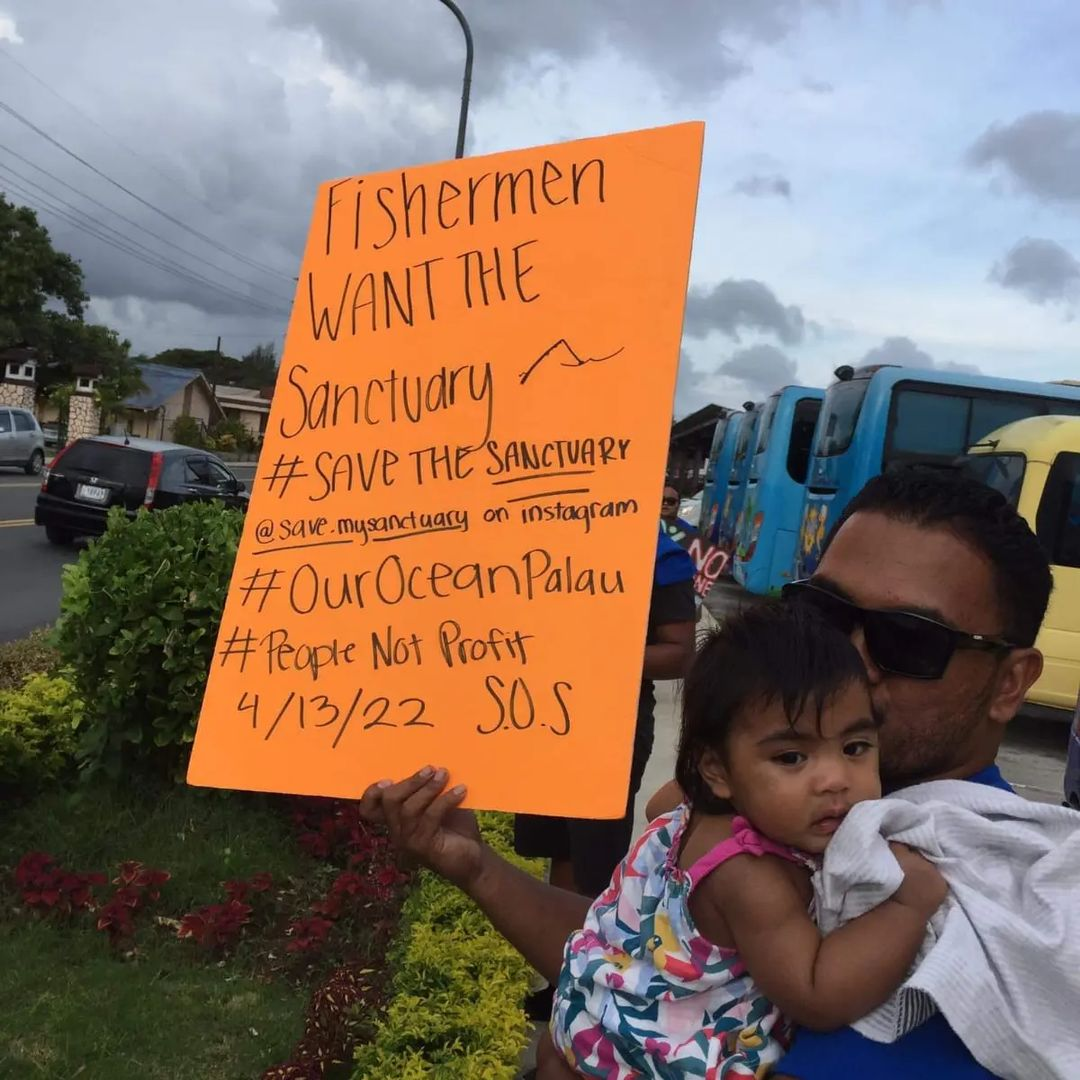 Fishermen
WANT THE
Sanctuary
#SAVE THE SANCTUARY
@save.mysanctuary on instagram
#OurOceanPalau
#People Not Profit
4/13/22 S.O.S
NO